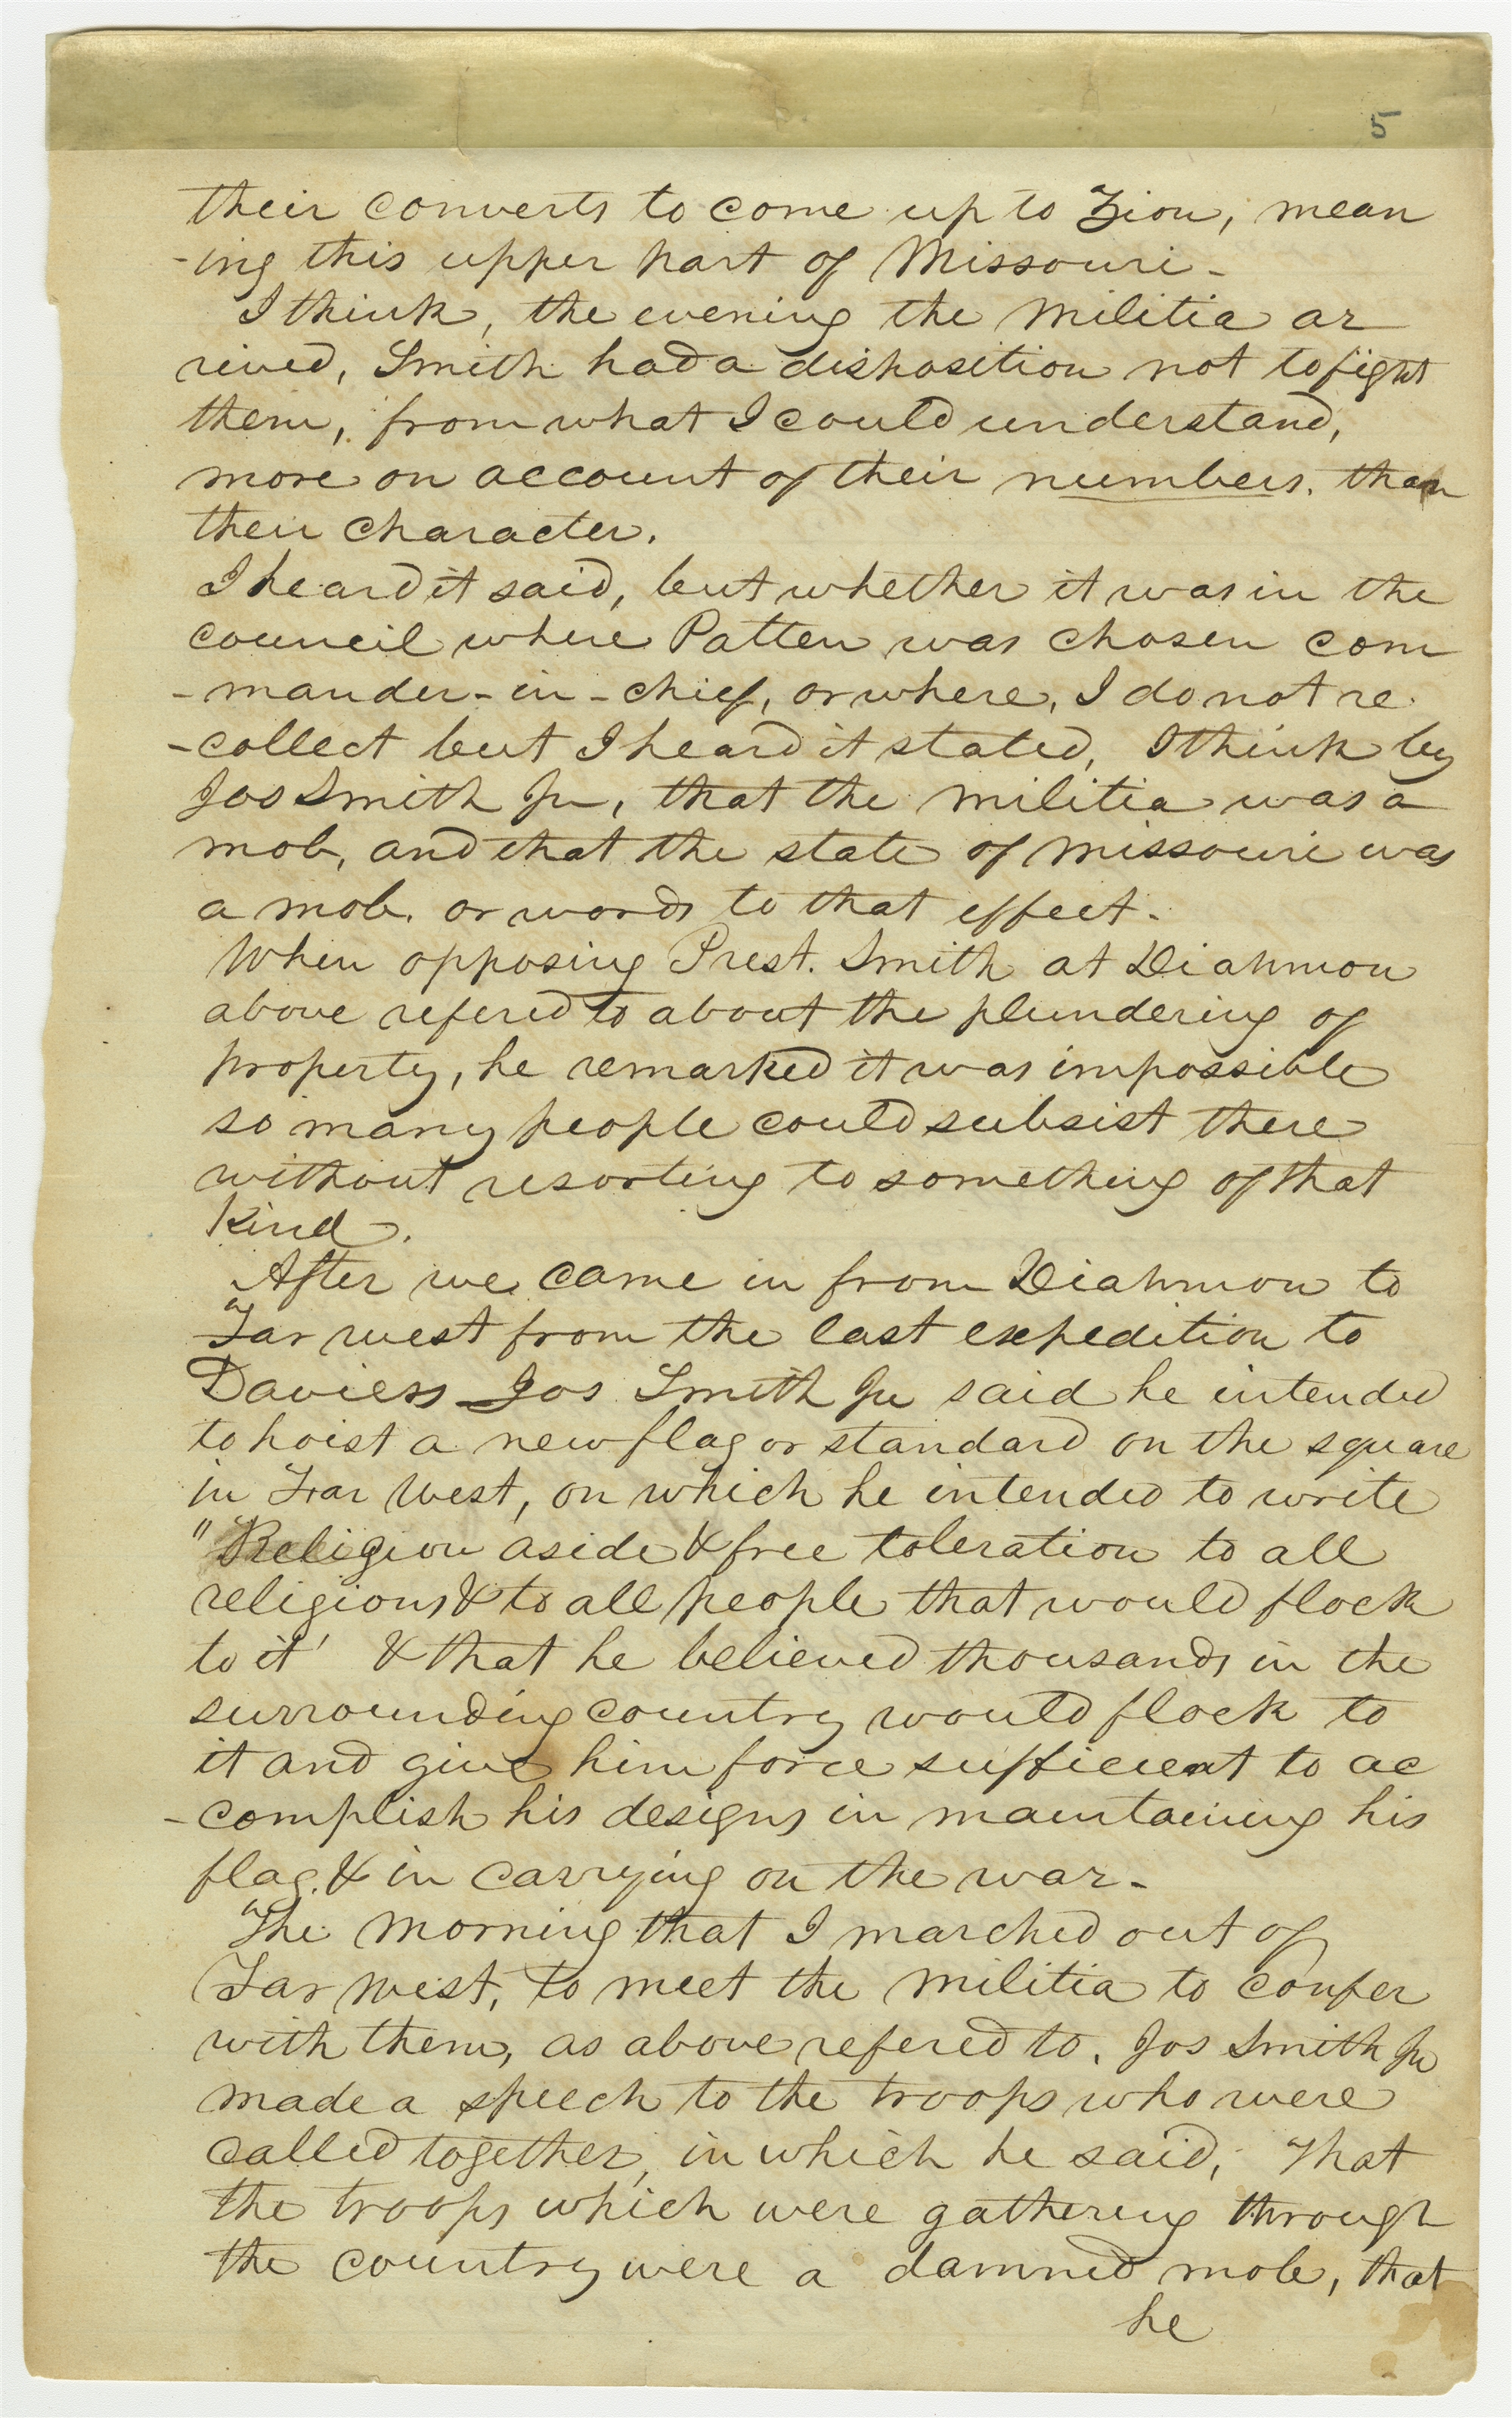 5
their converts to come up to Zion, mean
-ing this upper part of Missouri-
I think, the evening the Militia ar
rived, Smith had a disposition not to fight
them, from what I could understand,
more on account of their numbers, than
their character.
I heard it said, but whether it was in the
council where Patten was chosen com
-mander-in-chief, or where, I do not re
-collect but I heard it stated, I think by
Jos Smith Jr, that the militia was a
mob, and that the state of Missouri was
a mob, or words to that effect.
When opposing Prest. Smith at Diahmon
above refered to about the plundering of
property, he remarked it was impossible
so many people could subsist there
without resorting to something of that
kind.
After we came in from Diahmon to
Far west from the last expedition to
Daviess Jos Smith Jr said he intended
to hoist a new flag or standard on the square
in Far West, on which he intended to write
"Religion aside & free toleration to all
religions & to all people that would flock
to it' & that he believed thousands in the
surrounding country would flock to
it and give him force sufficient to ac
-complish his designs in maintaining his
flag. & in carrying on the war-
The morning that I marched out of
Far West, to meet the militia to confer
with them, as above refered to, Jos Smith Jr
made a speech to the troops who were
called together, in which he said, That
the troops which were gathering through
the country were a damned mob, that
he